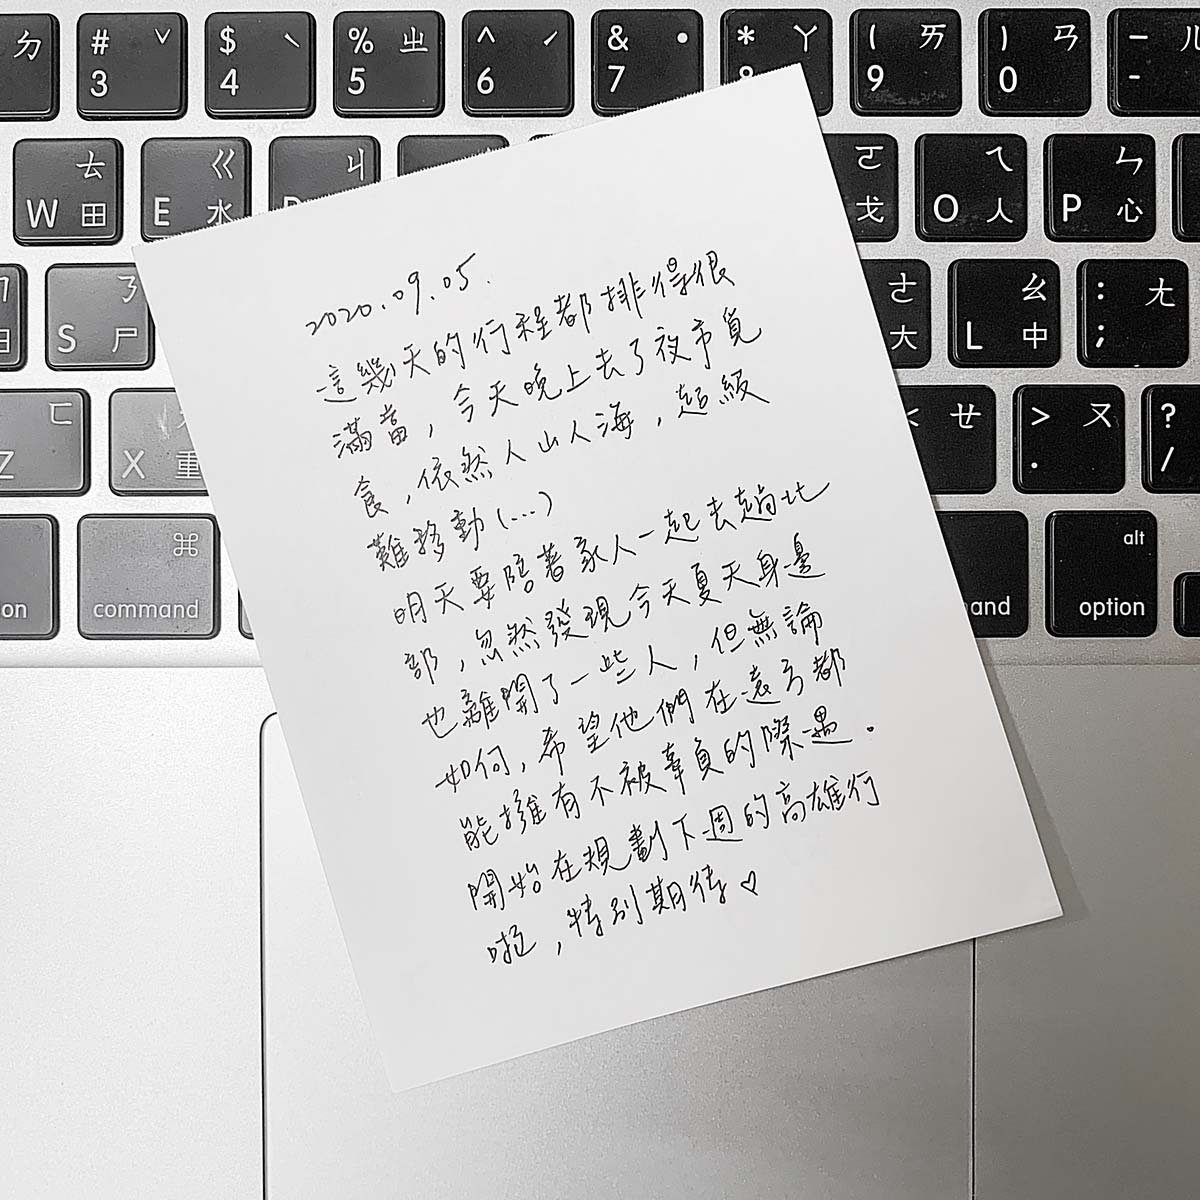 ㄉ # ˇ $ ˋ % ㄓ ^ ˊ & ˙ * ㄚ ( ㄞ ) ㄢ — ㄦ
3 4 5 6 7 8 9 0 -
ㄊ ㄍ ㄐ ㄛ ㄟ ㄣ
W 田 E 水 R 戈 O 人 P 心
ㄋ ㄜ ㄠ : ㄤ
S 尸 大 L 中 ;
ㄈ ㄝ > ㄡ ?
Z X 重 . /
⌘ alt
command option
2020.09.05.
這幾天的行程都排得很
滿當,今天晚上去了夜市覓
食,依然人山人海,超級
難移動(...)
明天要陪著家人一起去趟北
部,忽然發現今天夏天身邊
也離開了一些人,但無論
如何,希望他們在遠方都
能擁有不被辜負的際遇。
開始在規劃下週的高雄行
啦,特別期待♡